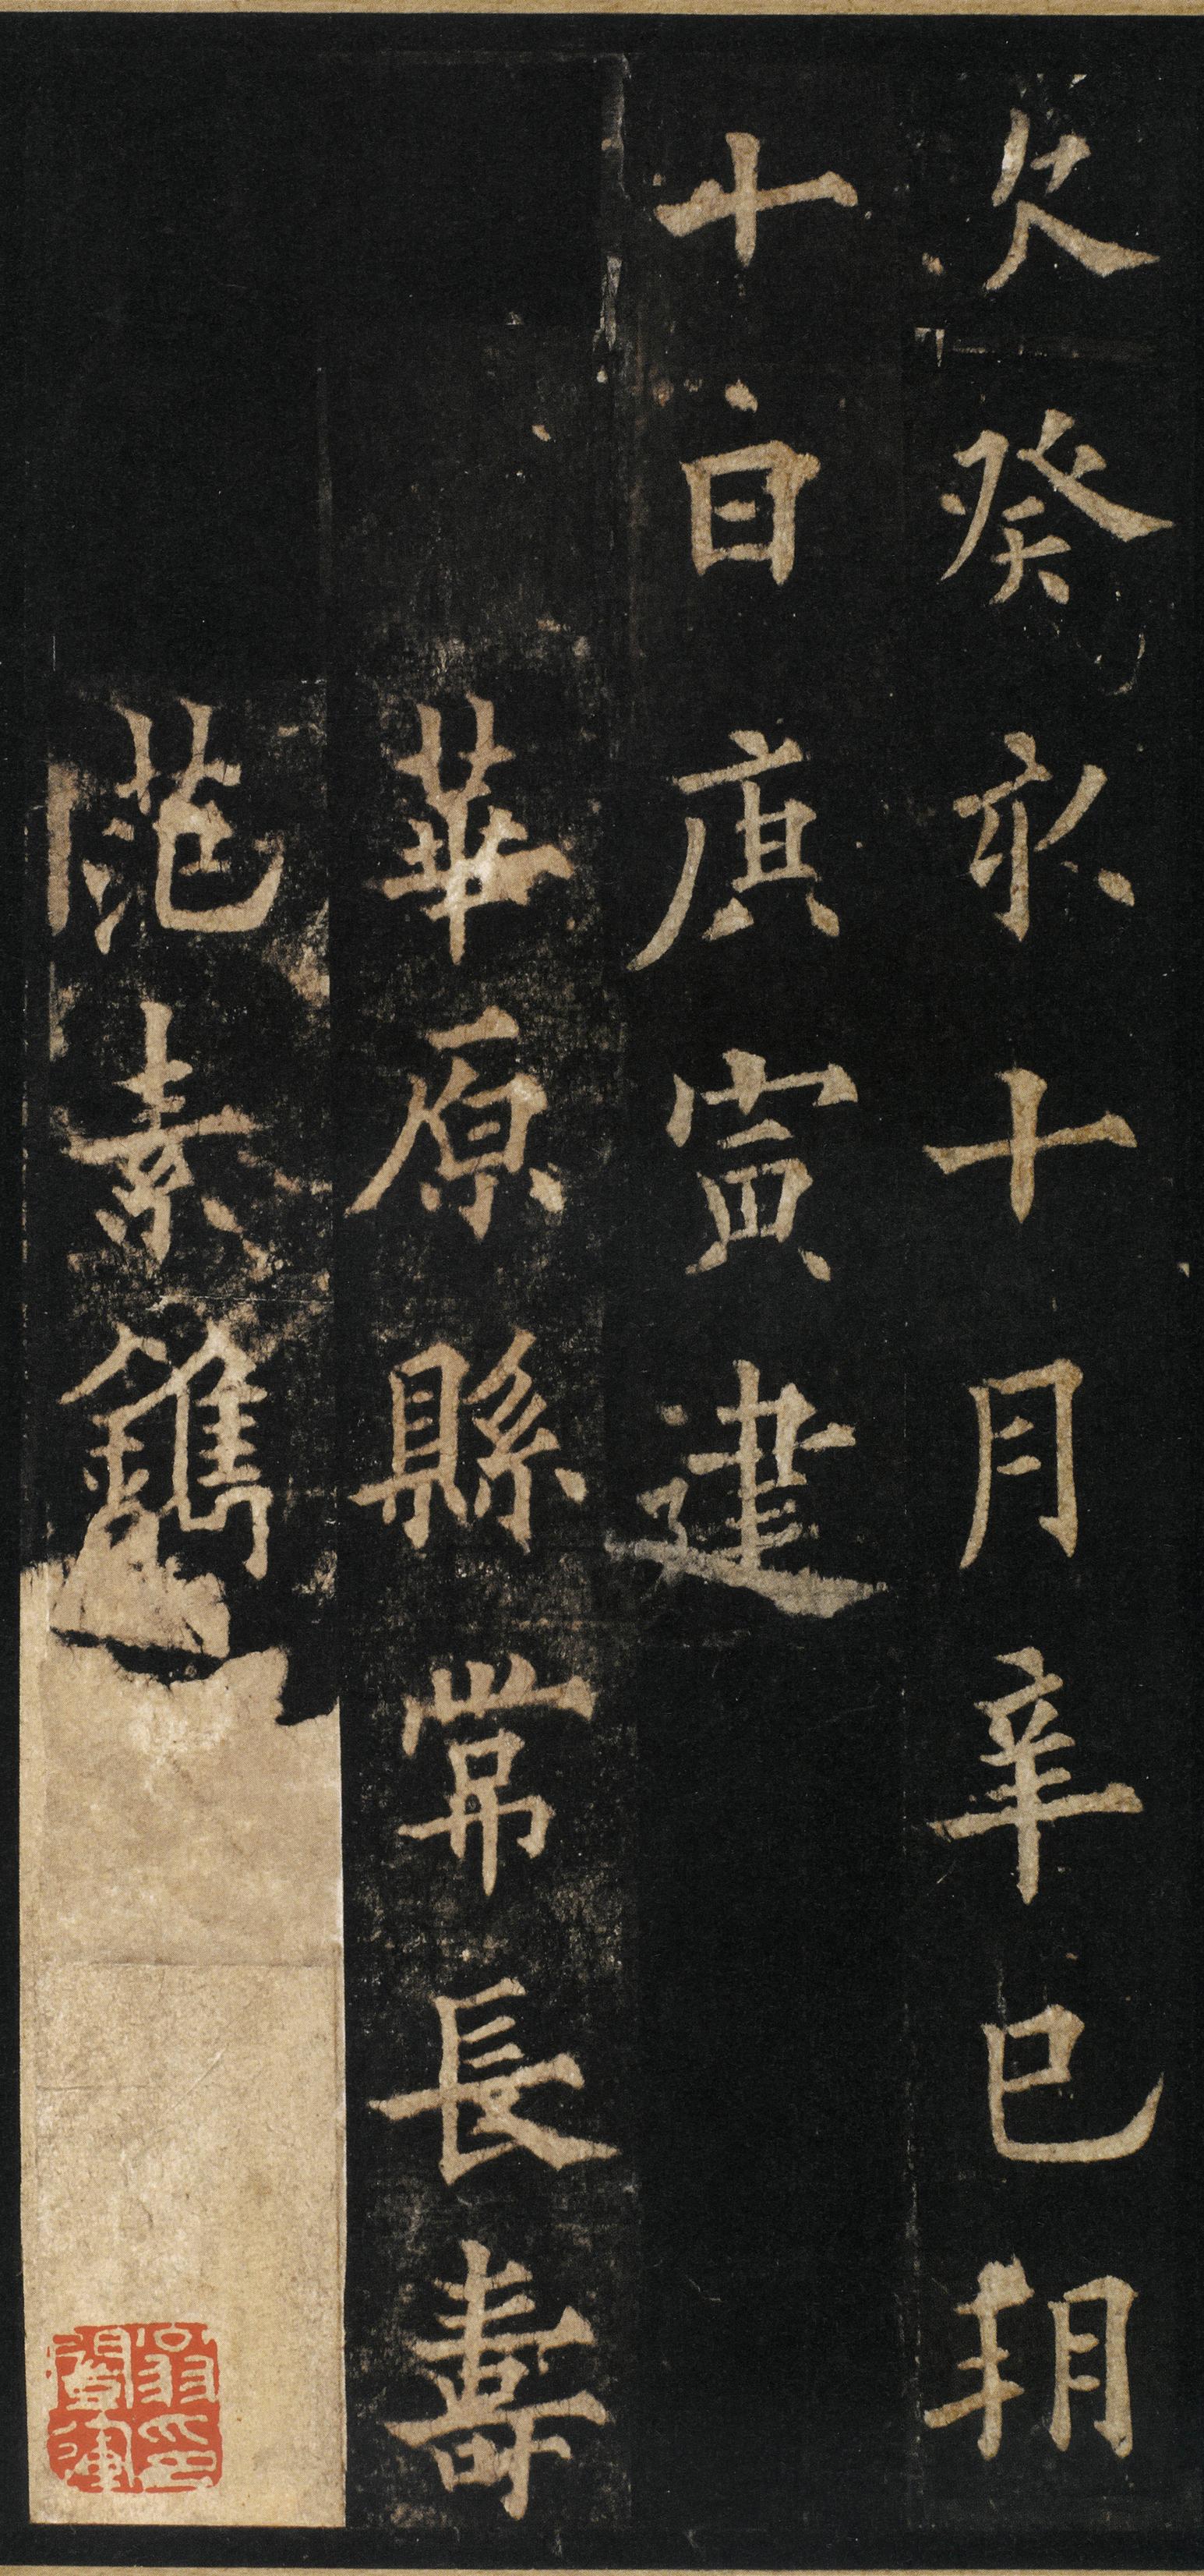 次癸亥十月辛巳朔
十日庚寅建
華原縣常長壽
范素鐫